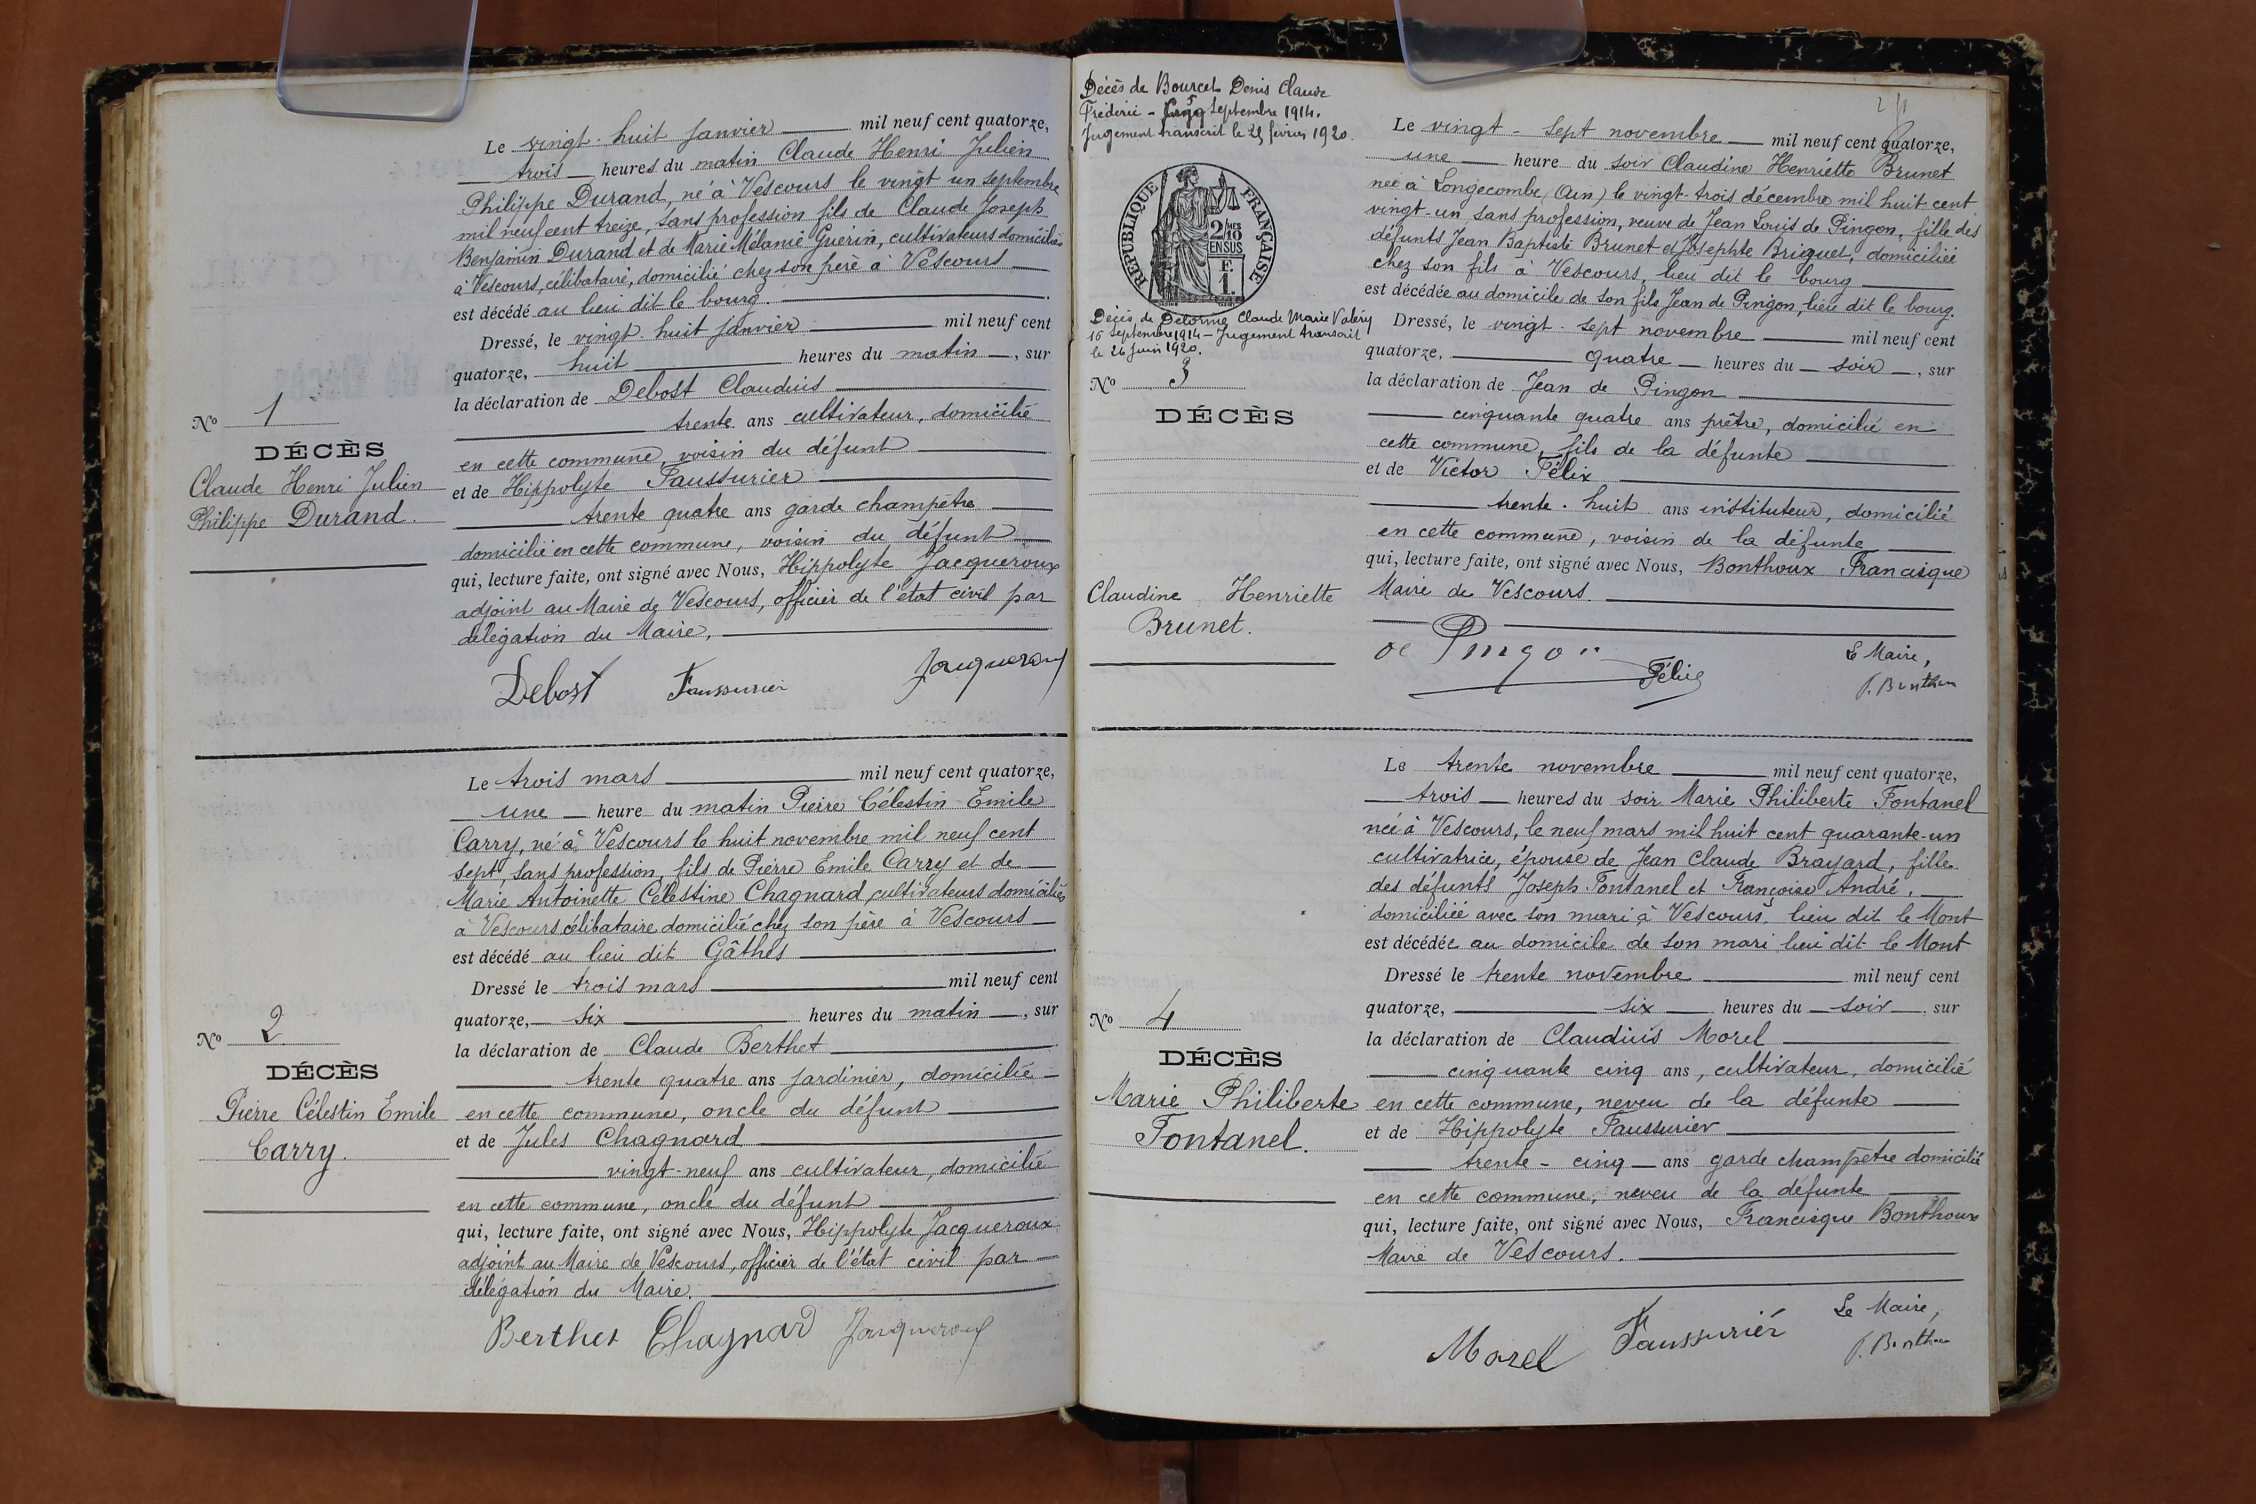 Le vingt-huit janvier mil neuf cent quatorze,
trois heures du matin Claude Henri Julien
Philippe Durand, né à Vescours le vingt un septembre
mil neuf cent treize, sans profession fils de Claude Joseph
Benjamin Durand et de Marie Mélanie Guérin, cultivateurs domiciliés
à Vescours, célibataire, domicilié chez son père à Vescours
est décédé au lieu dit le bourg.
Dressé, le vingt-huit janvier mil neuf cent
quatorze, huit heures du matin, sur
la déclaration de Debost Claudius
trente ans cultivateur, domicilié
en cette commune, voisin du défunt
et de Hippolyte Faussurier
trente quatre ans garde champêtre
domicilié en cette commune, voisin du défunt
qui, lecture faite, ont signé avec Nous, Hippolyte Jacqueroux
adjoint au Maire de Vescours, officier de l'état civil par
délégation du Maire.
Debost Faussurier Jacqueroux
No 1
DÉCÈS
Claude Henri Julien
Philippe Durand.
Le trois mars mil neuf cent quatorze,
une heure du matin Pierre Célestin Emile
Carry, né à Vescours le huit novembre mil neuf cent
sept, sans profession, fils de Pierre Emile Carry et de
Marie Antoinette Célestine Chagnard, cultivateurs domiciliés
à Vescours célibataire domicilié chez son père à Vescours
est décédé au lieu dit Gâthes
Dressé le trois mars mil neuf cent
quatorze, six heures du matin, sur
la déclaration de Claude Berthet
trente quatre ans jardinier, domicilié
en cette commune, oncle du défunt
et de Jules Chagnard
vingt-neuf ans cultivateur, domicilié
en cette commune, oncle du défunt
qui, lecture faite, ont signé avec Nous, Hippolyte Jacqueroux
adjoint au Maire de Vescours, officier de l'état civil par
délégation du Maire.
Berthet Chagnard Jacqueroux
No 2
DÉCÈS
Pierre Célestin Emile
Carry.
Décès de Bourcet Denis Claude
Fréderic - 5 Septembre 1914.
Jugement transcrit le 25 février 1920.
REPUBLIQUE FRANÇAISE
2/10MES
EN SUS
F.
1.
Décès de Delorme Claude Marie Valéry
16 Septembre 1914 - Jugement transcrit
le 26 Juin 1920.
No 3
DÉCÈS
Claudine Henriette
Brunet.
Le vingt-sept novembre mil neuf cent quatorze,
une heure du soir Claudine Henriette Brunet
née à Songecombe (Ain) le vingt-trois décembre mil huit cent
vingt-un sans profession, veuve de Jean Louis de Pingon, fille des
défunts Jean Baptiste Brunet et Josephte Briguet, domiciliée
chez son fils à Vescours, lieu dit le bourg
est décédée au domicile de son fils Jean de Pingon, lieu dit le bourg.
Dressé, le vingt-sept novembre mil neuf cent
quatorze, quatre heures du soir, sur
la déclaration de Jean de Pingon
cinquante quatre ans prêtre, domicilié en
cette commune, fils de la défunte
et de Victor Félix
trente-huit ans instituteur, domicilié
en cette commune, voisin de la défunte
qui, lecture faite, ont signé avec Nous, Bonthoux Francisque
Maire de Vescours.
de Pingon Félix Le Maire,
F. Bonthoux
Le trente novembre mil neuf cent quatorze,
trois heures du soir Marie Philiberte Fontanel
née à Vescours, le neuf mars mil huit cent quarante-un
cultivatrice, épouse de Jean Claude Brayard, fille
des défunts Joseph Fontanel et Françoise André,
domiciliée avec son mari à Vescours, lieu dit le Mont
est décédée au domicile de son mari lieu dit le Mont
Dressé le trente novembre mil neuf cent
quatorze, six heures du soir, sur
la déclaration de Claudius Morel
cinquante cinq ans, cultivateur, domicilié
en cette commune, neveu de la défunte
et de Hippolyte Faussurier
trente-cinq ans garde champêtre domicilié
en cette commune, neveu de la défunte
qui, lecture faite, ont signé avec Nous, Francisque Bonthoux
Maire de Vescours.
Morel Faussurier Le Maire,
F. Bonthoux
No 4
DÉCÈS
Marie Philiberte
Fontanel.